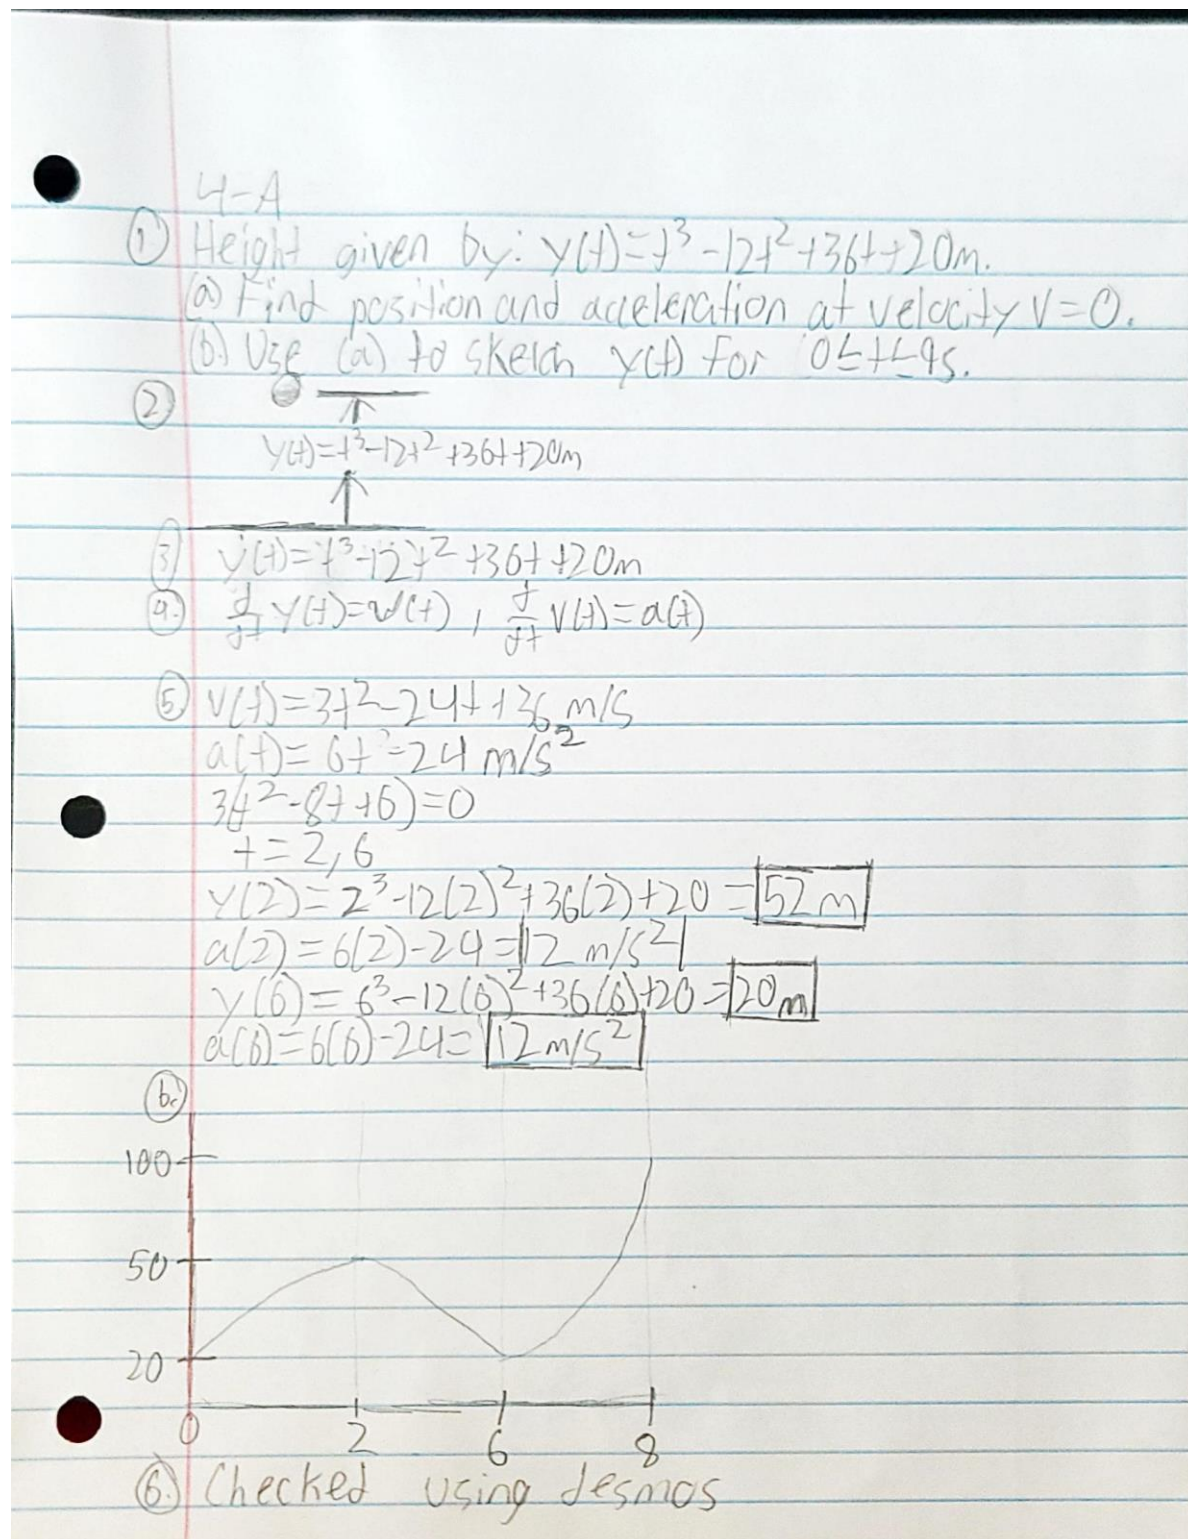 4-A
① Height given by: y(t)=t³-12t²+36t+20m.
(a) Find position and acceleration at velocity V=0.
(b.) Use (a) to sketch y(t) for 0≤t≤9s.
②
y(t)=t³-12t²+36t+20m
③ y(t)=t³-12t²+36t+20m
④. d/dt y(t)=v(t), d/dt v(t)=a(t)
⑤ v(t)=3t²-24t+36 m/s
a(t)=6t-24 m/s²
3(t²-8t+6)=0
t=2,6
y(2)=2³-12(2)²+36(2)+20=52m
a(2)=6(2)-24=12 m/s²
y(6)=6³-12(6)²+36(6)+20=20m
a(6)=6(6)-24=12m/s²
b.
100
50
20
0 2 6 8
⑥. Checked using desmos